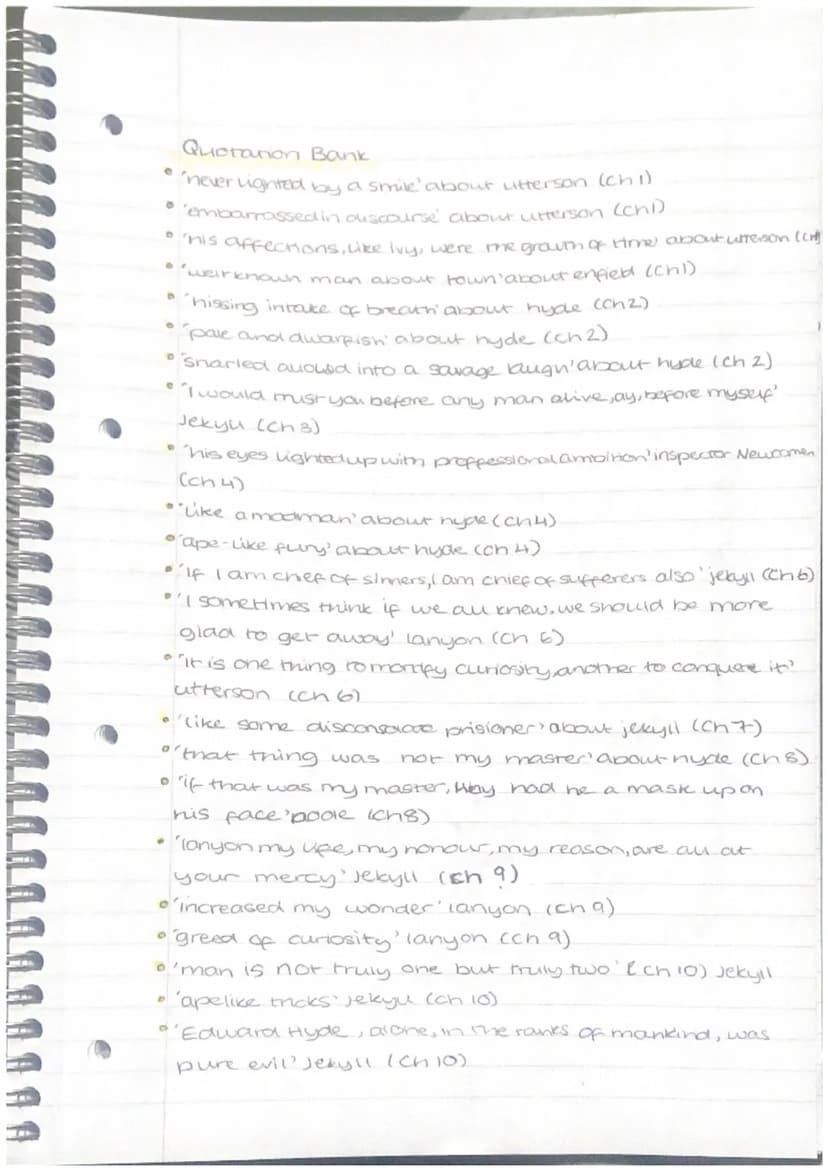 Quotation Bank
• 'never lighted by a smile' about utterson (ch1)
• 'embarrassed in discourse' about utterson (ch1)
• 'his affections, like ivy, were the growth of time' about utterson (ch1)
• 'well known man about town' about enfield (ch1)
• 'hissing intake of breath' about hyde (ch2)
• 'pale and dwarfish' about hyde (ch2)
• 'snarled aloud into a savage laugh' about hyde (ch2)
• 'I would trust you before any man alive, ay, before myself'
Jekyll (ch3)
• 'his eyes lighted up with proffessional ambition' inspector Newcomen
(ch4)
• 'like a madman' about hyde (ch4)
• 'ape-like fury' about hyde (ch4)
• 'If I am chief of sinners, I am chief of sufferers also' jekyll (ch6)
• 'I sometimes think if we all knew, we should be more
glad to get away' lanyon (ch 6)
• 'it is one thing to mortify curiosity, another to conquere it'
utterson (ch 6)
• 'like some disconsolate prisioner' about jekyll (ch7)
• 'that thing was not my master' about hyde (ch8)
• 'if that was my master, Why had he a mask upon
his face' poole (ch8)
• 'lanyon my life, my honour, my reason, are all at
your mercy' Jekyll (ch 9)
• 'increased my wonder' lanyon (ch9)
• 'greed of curiosity' lanyon (ch 9)
• 'man is not truly one but truly two' (ch 10) Jekyll
• 'apelike tricks' Jekyll (ch 10)
• 'Edward Hyde, alone, in the ranks of mankind, was
pure evil' Jekyll (ch10)